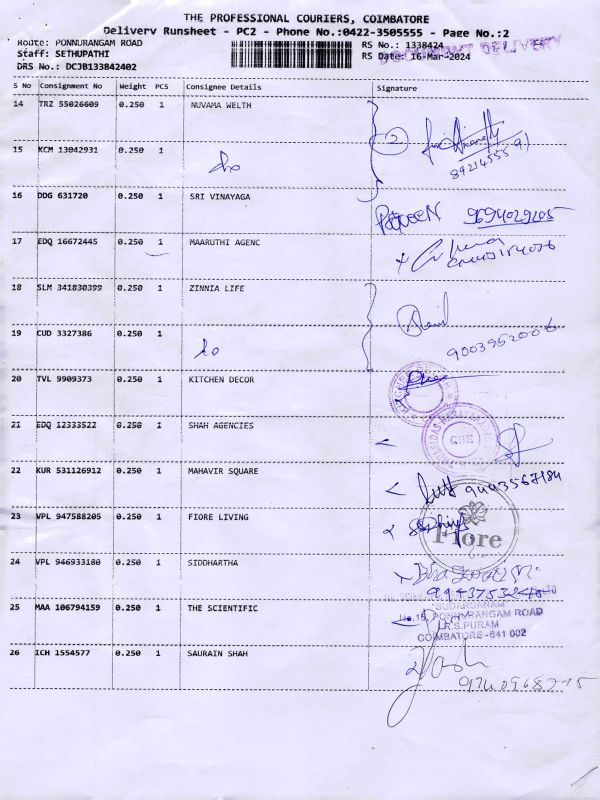 THE PROFESSIONAL COURIERS, COIMBATORE
Delivery Runsheet - PC2 - Phone No.:0422-3505555 - Page No.:2
Route: PONNURANGAM ROAD RS No.: 1338424
Staff: SETHUPATHI RS Date: 16-Mar-2024
DRS No.: DCJB133842402
DOCUMENT DELIVERY
S No Consignment No Weight PCS Consignee Details Signature
14 TRZ 55026609 0.250 1 NUVAMA WELTH
2
15 KCM 13042931 0.250 1 do
16 DDG 631720 0.250 1 SRI VINAYAGA
9694029205
17 EDQ 16672445 0.250 1 MAARUTHI AGENC
18 SLM 341830399 0.250 1 ZINNIA LIFE
19 CUD 3327386 0.250 1 do
9003952006
20 TVL 9909373 0.250 1 KITCHEN DECOR
21 EDQ 12333522 0.250 1 SHAH AGENCIES
22 KUR 531126912 0.250 1 MAHAVIR SQUARE
9443567184
23 VPL 947588205 0.250 1 FIORE LIVING
Fiore
24 VPL 946933180 0.250 1 SIDDHARTHA
25 MAA 106794159 0.250 1 THE SCIENTIFIC
"SUDARSANAM"
No.15, PONNURANGAM ROAD
R.S.PURAM
COIMBATORE -641 002
26 ICH 1554577 0.250 1 SAURAIN SHAH